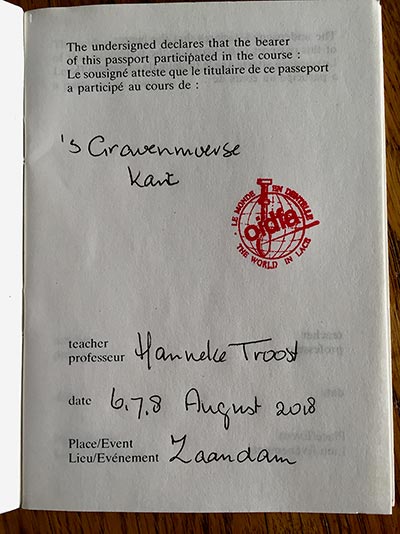 The undersigned declares that the bearer
of this passport participated in the course :
Le sousigné atteste que le titulaire de ce passeport
a participé au cours de :
's Gravenmoerse
Kant
LE MONDE EN DENTELLE
oidfa
THE WORLD IN LACE
teacher
professeur Hanneke Troost
date 6,7,8 August 2018
Place/Event
Lieu/Evénement Zaandam